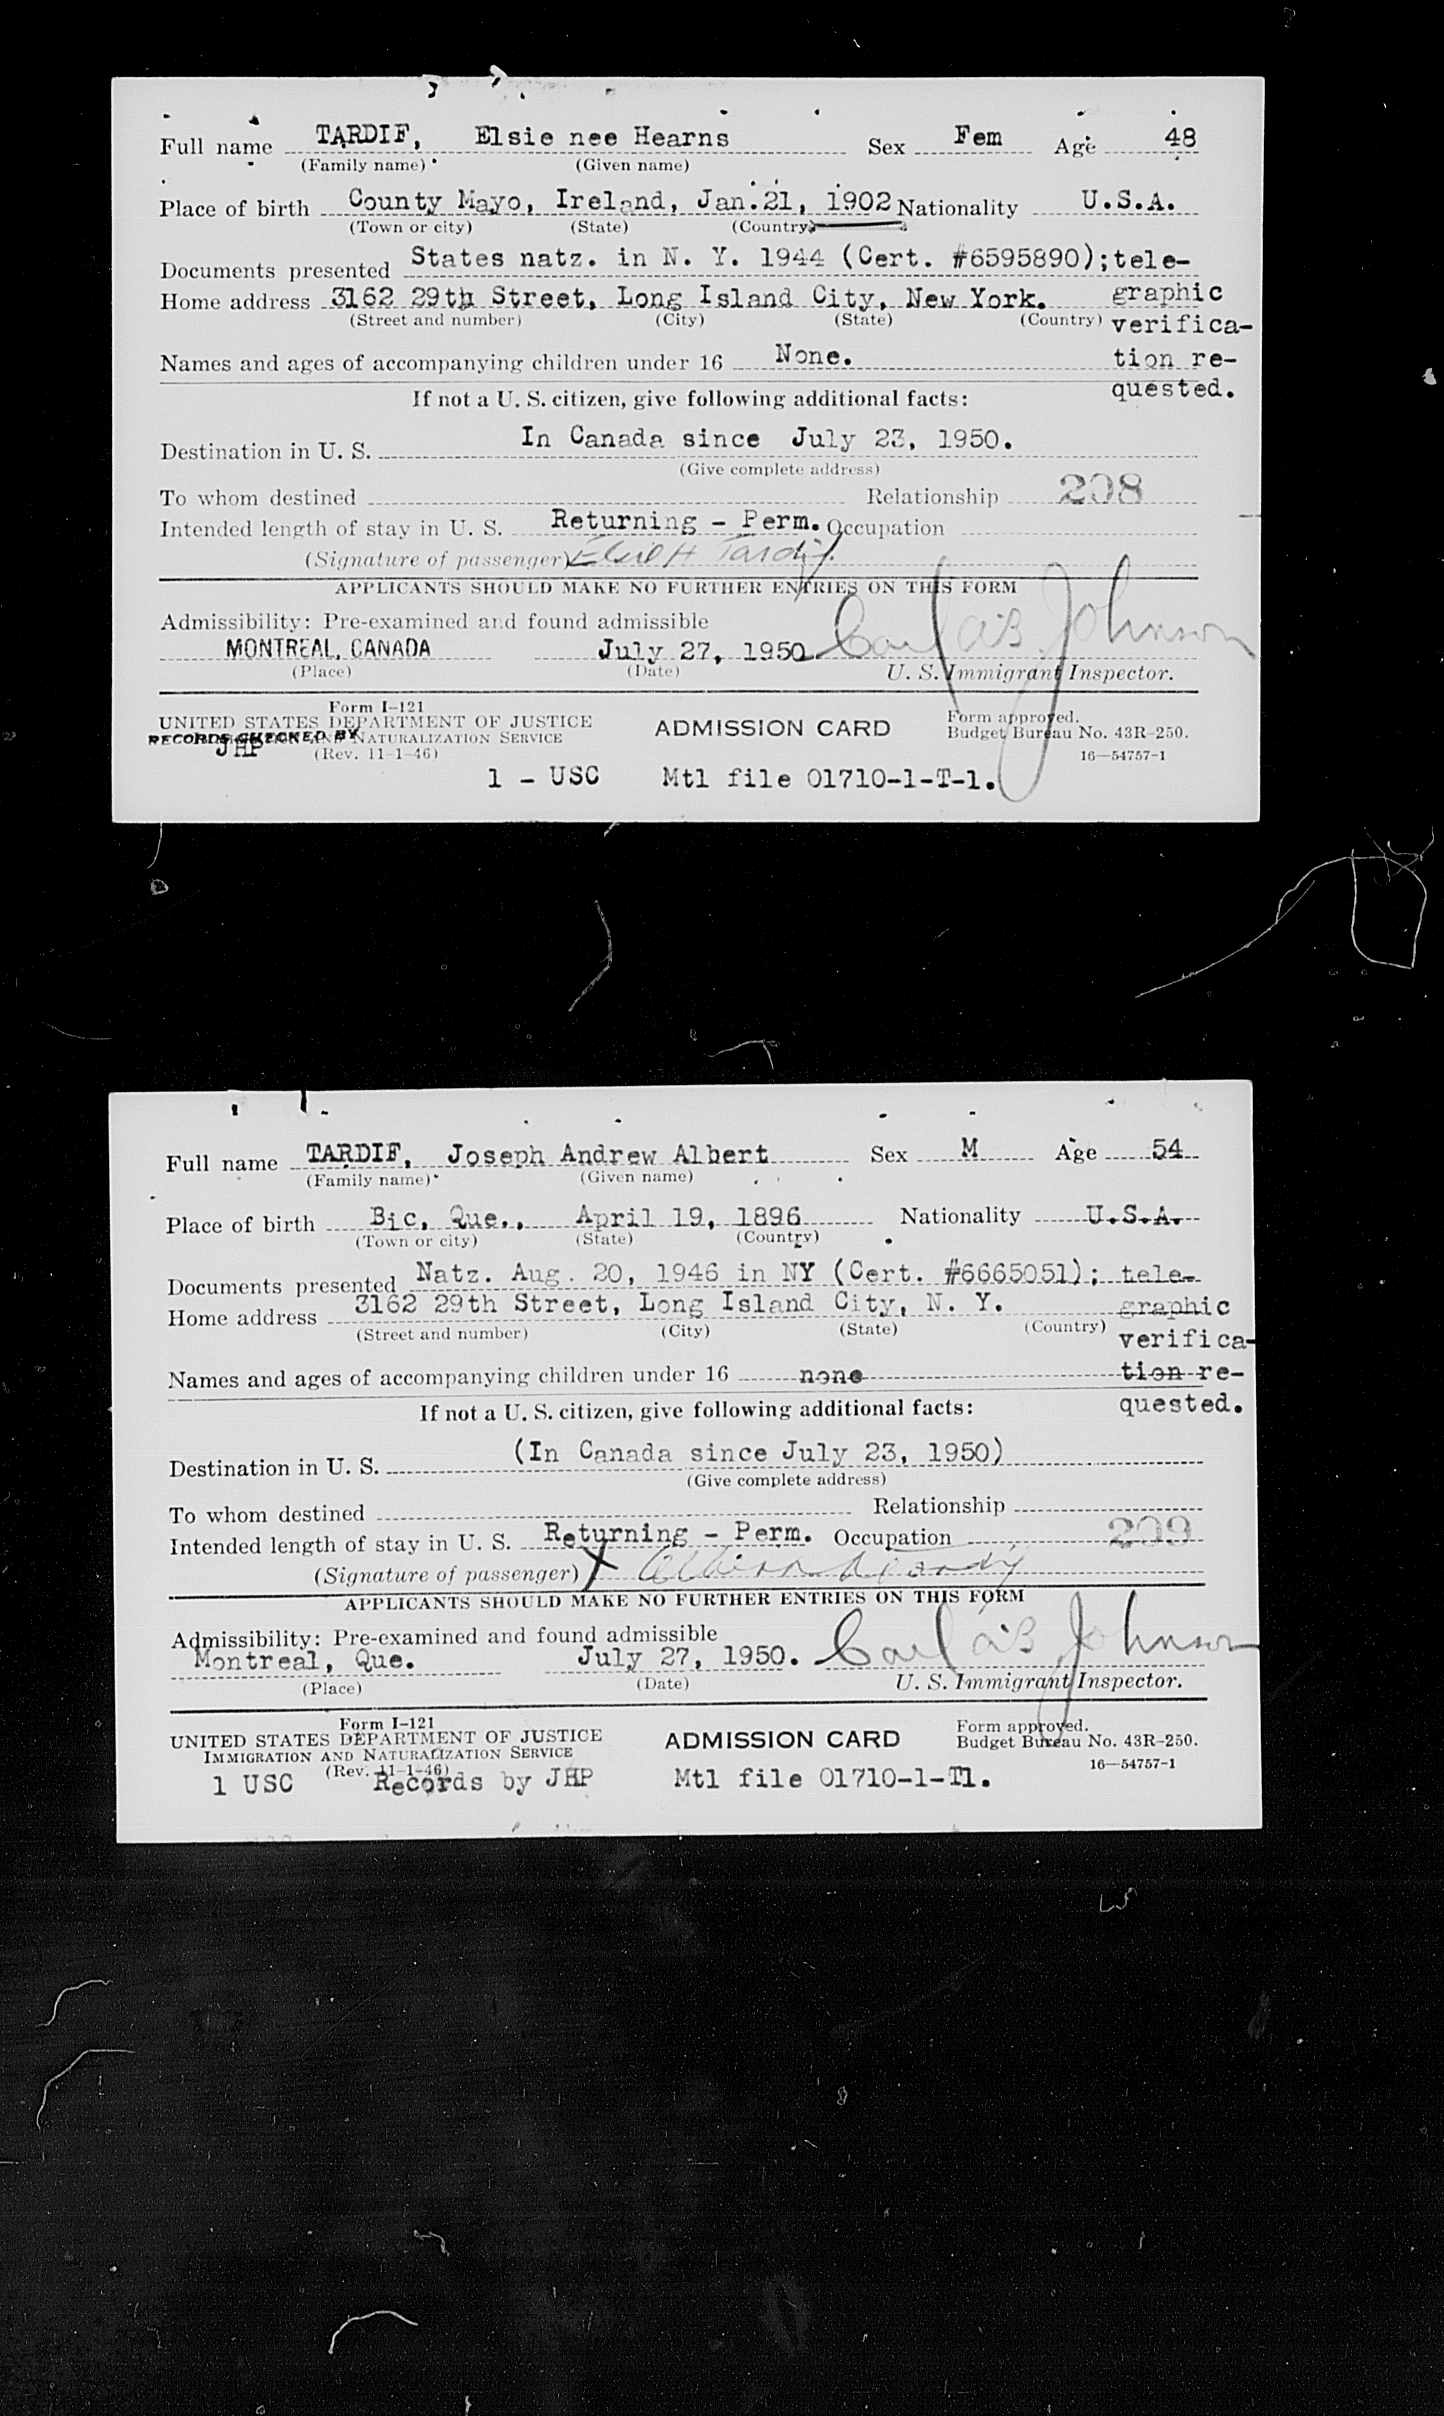 Full name TARDIF, Elsie nee Hearns Sex Fem Age 48
(Family name) (Given name)
Place of birth County Mayo, Ireland, Jan. 21, 1902 Nationality U.S.A.
(Town or city) (State) (Country)
Documents presented States natz. in N. Y. 1944 (Cert. #6595890); tele-
Home address 3162 29th Street, Long Island City, New York. graphic
(Street and number) (City) (State) (Country) verifica-
Names and ages of accompanying children under 16 None. tion re-
quested.
If not a U. S. citizen, give following additional facts:
Destination in U. S. In Canada since July 23, 1950.
(Give complete address)
To whom destined Relationship 208
Intended length of stay in U. S. Returning - Perm. Occupation
(Signature of passenger) Elsie H Tardif.
APPLICANTS SHOULD MAKE NO FURTHER ENTRIES ON THIS FORM
Admissibility: Pre-examined and found admissible
MONTREAL, CANADA July 27, 1950 Carl A. B. Johnson
(Place) (Date) U. S. Immigrant Inspector.
Form I-121
UNITED STATES DEPARTMENT OF JUSTICE ADMISSION CARD Form approved.
IMMIGRATION AND NATURALIZATION SERVICE Budget Bureau No. 43R-250.
RECORDS CHECKED BY
JHP (Rev. 11-1-46) 16—54757-1
1 - USC Mtl file 01710-1-T-1.
Full name TARDIF, Joseph Andrew Albert Sex M Age 54
(Family name) (Given name)
Place of birth Bic, Que., April 19, 1896 Nationality U.S.A.
(Town or city) (State) (Country)
Documents presented Natz. Aug. 20, 1946 in NY (Cert. #6665051); tele-
Home address 3162 29th Street, Long Island City, N. Y. graphic
(Street and number) (City) (State) (Country) verifica-
Names and ages of accompanying children under 16 none tion re-
If not a U. S. citizen, give following additional facts: quested.
Destination in U. S. (In Canada since July 23, 1950)
(Give complete address)
To whom destined Relationship
Intended length of stay in U. S. Returning - Perm. Occupation 209
(Signature of passenger) X
APPLICANTS SHOULD MAKE NO FURTHER ENTRIES ON THIS FORM
Admissibility: Pre-examined and found admissible
Montreal, Que. July 27, 1950. Carl A. B. Johnson
(Place) (Date) U. S. Immigrant Inspector.
Form I-121
UNITED STATES DEPARTMENT OF JUSTICE ADMISSION CARD Form approved.
IMMIGRATION AND NATURALIZATION SERVICE Budget Bureau No. 43R-250.
(Rev. 11-1-46) 16—54757-1
1 USC Records by JHP Mtl file 01710-1-T1.